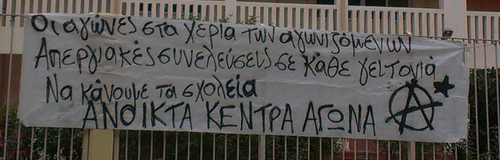 Οι αγώνες στα χέρια των αγωνιζόμενων
Απεργιακές συνελεύσεις σε κάθε γειτονιά
Να κάνουμε τα σχολεία
ΑΝΟΙΚΤΑ ΚΕΝΤΡΑ ΑΓΩΝΑ